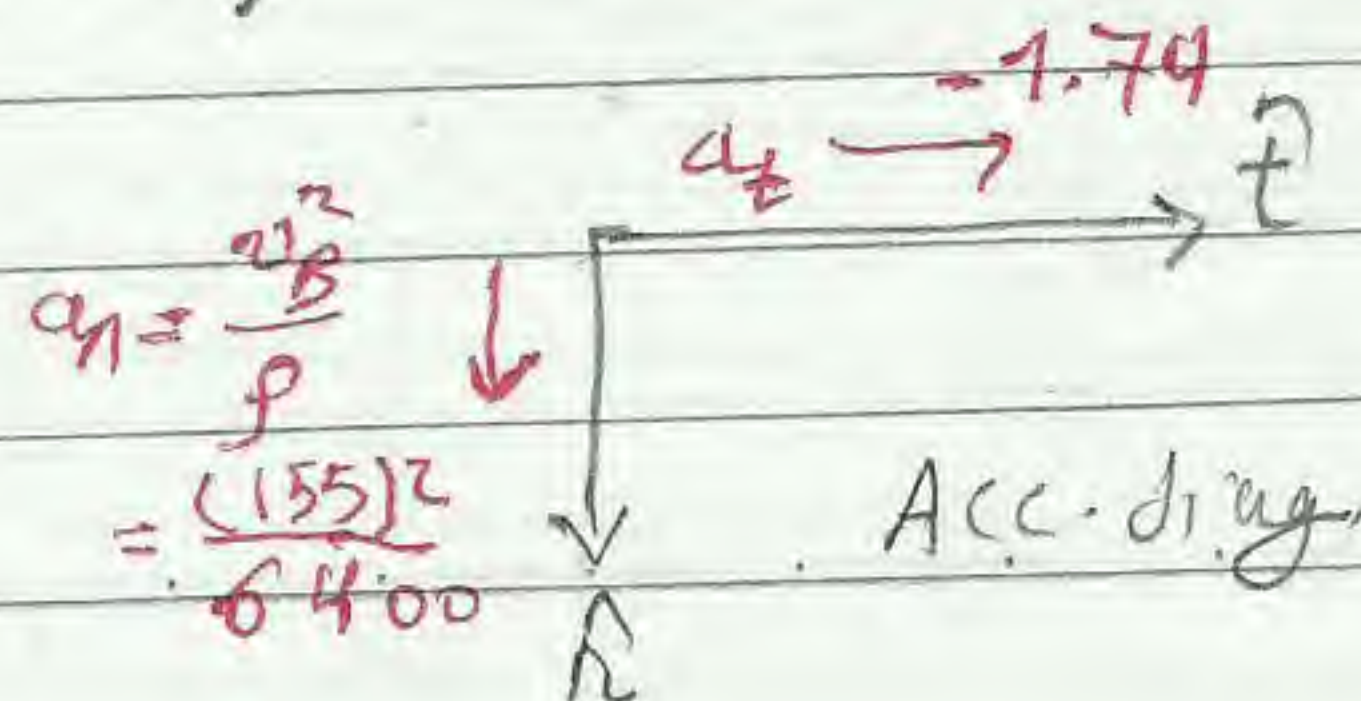 -1.74
a_t → t̂
a_n = v_B² / ρ ↓
= (155)² / 6400
Acc. diag.
n̂